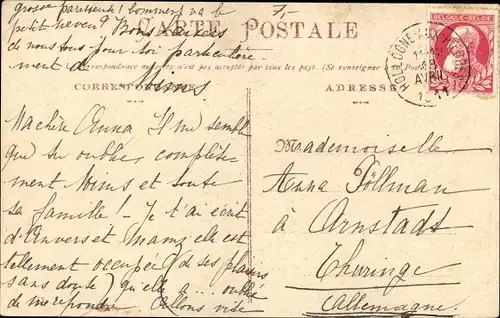 grosse paresseuse! Comment va le
petit neveu? Bons baisers
de nous tous pour toi particulière
ment de Moims
CARTE POSTALE
La correspondance au recto n'est pas acceptée par tous les pays. (Se renseigner
CORRESPONDANCE
ADRESSE
BELGIQUE-BELGIË
AVRIL
1911
Ma chère Anna Il me semble
que tu oublies complète
ment Moims et toute
sa famille! - Je t'ai écrit
d'Anvers et Mamz'elle est
tellement occupée (de ses plaisirs
sans doute) qu'elle a ... oublié
de me répondre. Allons vite
Mademoiselle
Anna Föllman
à Arnstadt
Thuringe
Allemagne